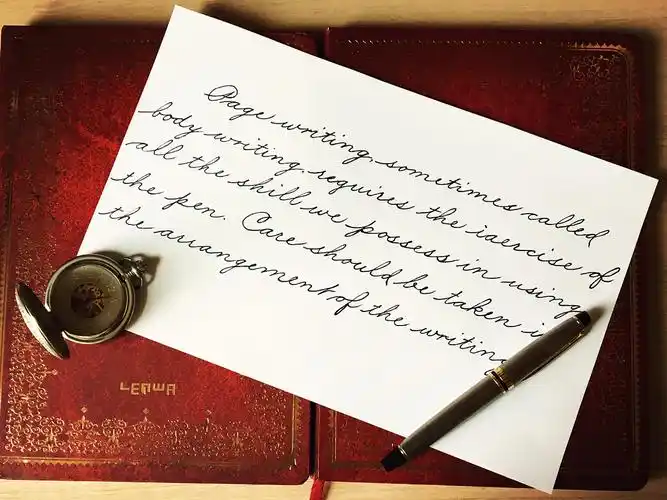 Page writing, sometimes called
body writing, requires the exercise of
all the skill we possess in using
the pen. Care should be taken i
the arrangement of the writing